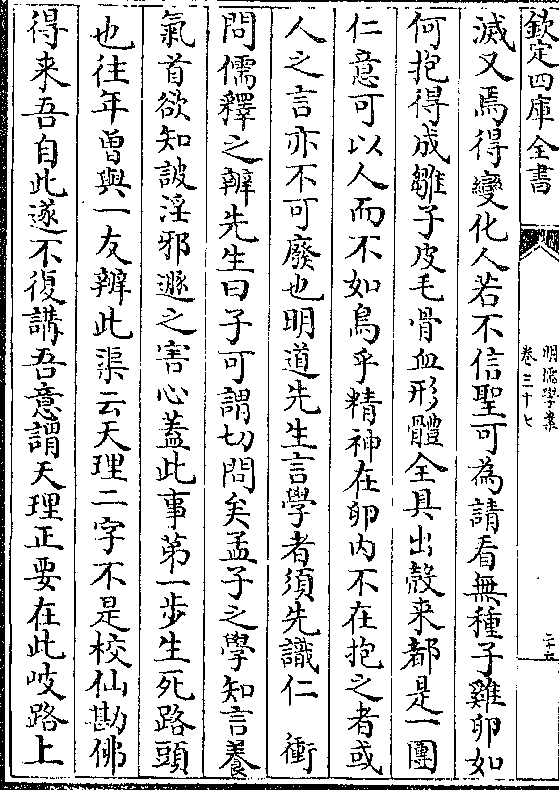 欽定四庫全書
明儒學案
卷三十七
二十五
滅又焉得變化人若不信聖可為請看無種子雞卵如
何抱得成雛子皮毛骨血形體全具出殼来都是一團
仁意可以人而不如鳥乎精神在卵内不在抱之者或
人之言亦不可廢也明道先生言學者須先識仁　衝
問儒釋之辯先生曰子可謂切問矣孟子之學知言養
氣首欲知詖淫邪遁之害心蓋此事第一步生死路頭
也往年曽與一友辯此渠云天理二字不是校仙勘佛
得来吾自此遂不復講吾意謂天理正要在此岐路上